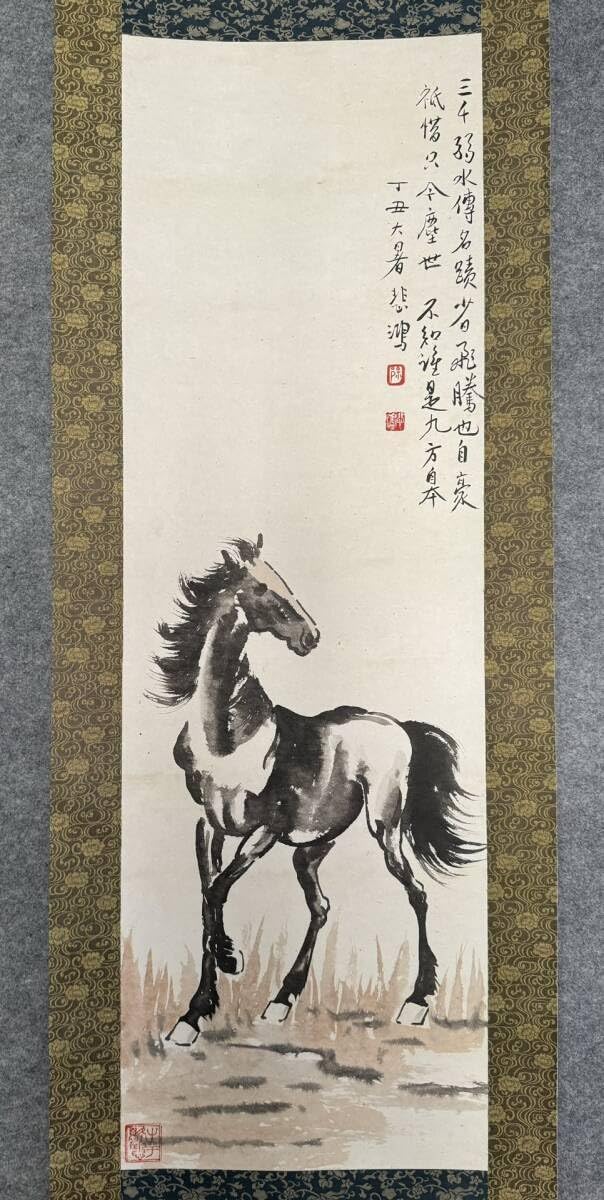 三千弱水傳名蹟少日飛騰也自豪
祗惜只今塵世不知誰是九方皋
丁丑大暑悲鴻
悲鴻